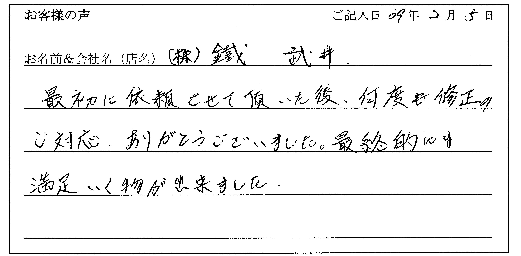 お客様の声 ご記入日 09年 2月 5日
お名前&会社名(店名)(株)鐵 武井
最初に依頼させて頂いた後、何度も修正の
ご対応、ありがとうございました。最終的にも
満足いく物が出来ました。